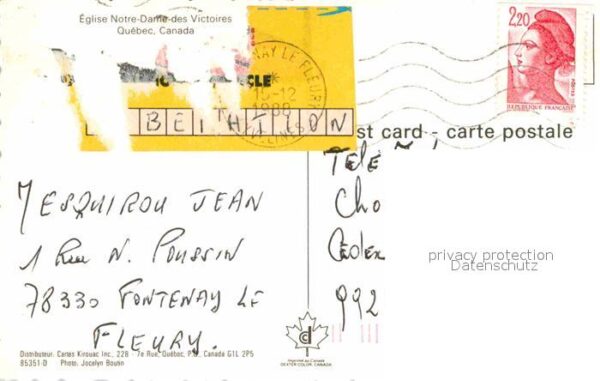 Église Notre-Dame-des Victoires
Québec, Canada
CLE
NAY LE FLEURY
15-12
1988
YVELINES
BETHLION
2,20
REPUBLIQUE FRANÇAISE
st card - carte postale
MESQUIROU JEAN
1 Rue N. POUSSIN
78330 FONTENAY LE
FLEURY.
TELE
Cho
Cedex
992
privacy protection
Datenschutz
Distributeur. Cartes Kirouac Inc., 228 - 7e Rue, Québec, P.Q., Canada G1L 2P5
85351 D Photo. Jocelyn Boutin
Imprimé au Canada
DEXTER COLOR, CANADA